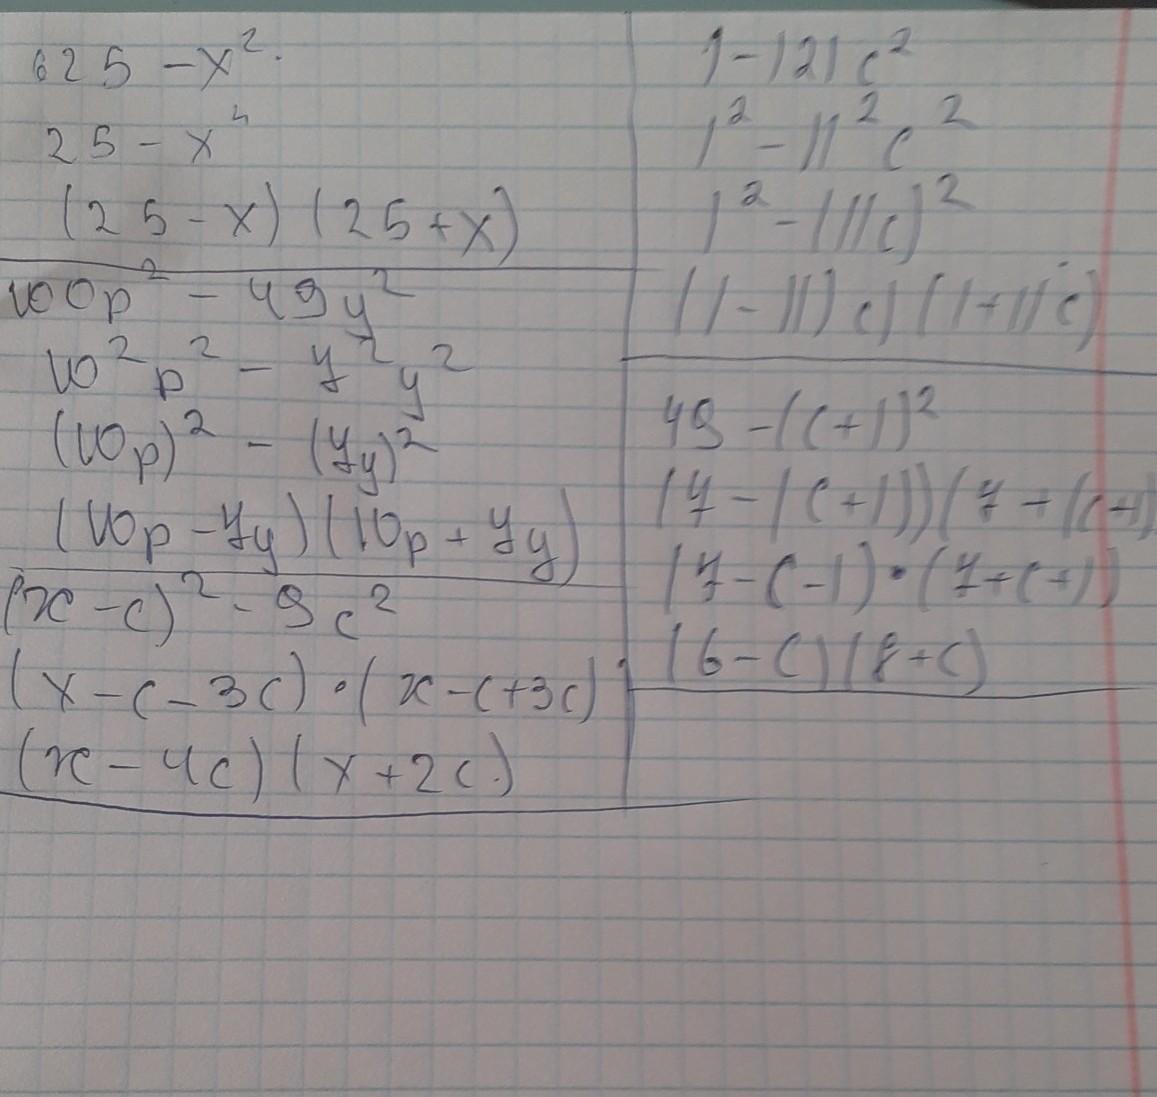 625 - x².
25 - x⁴
(25 - x) (25 + x)
100p² - 49y²
10² p² - 7² y²
(10p)² - (7y)²
(10p - 7y) (10p + 7y)
(x - c)² - 9c²
(x - c - 3c) · (x - c + 3c)
(x - 4c) (x + 2c)
1 - 121 c²
1² - 11² c²
1² - (11c)²
(1 - 11) c) (1 + 11c)
49 - (c + 1)²
(7 - (c + 1)) (7 + (c + 1)
(7 - c - 1) · (7 + c + 1)
(6 - c) (8 + c)